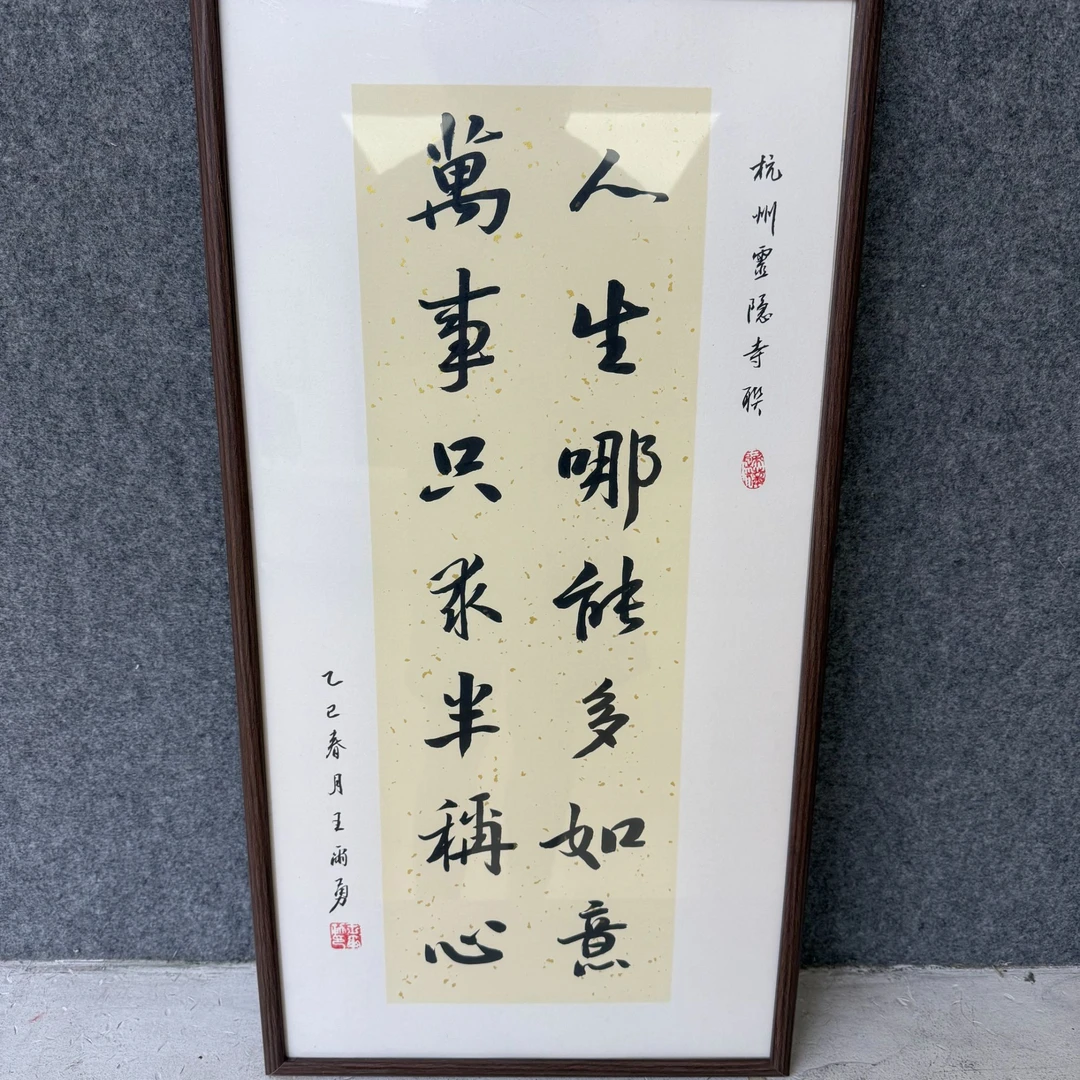 杭州靈隐寺联
人生哪能多如意
萬事只求半稱心
乙巳春月王雨勇